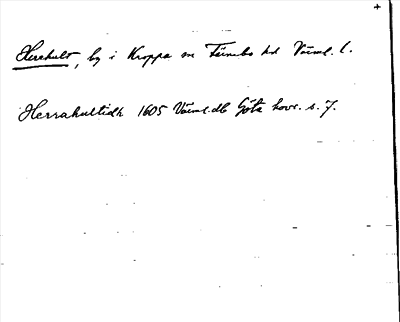 Herrhult, by i Kroppa sn Färnebo hd Värml. l.
Herrahultidh 1605 Värml. db Göta hovr. s. 7.